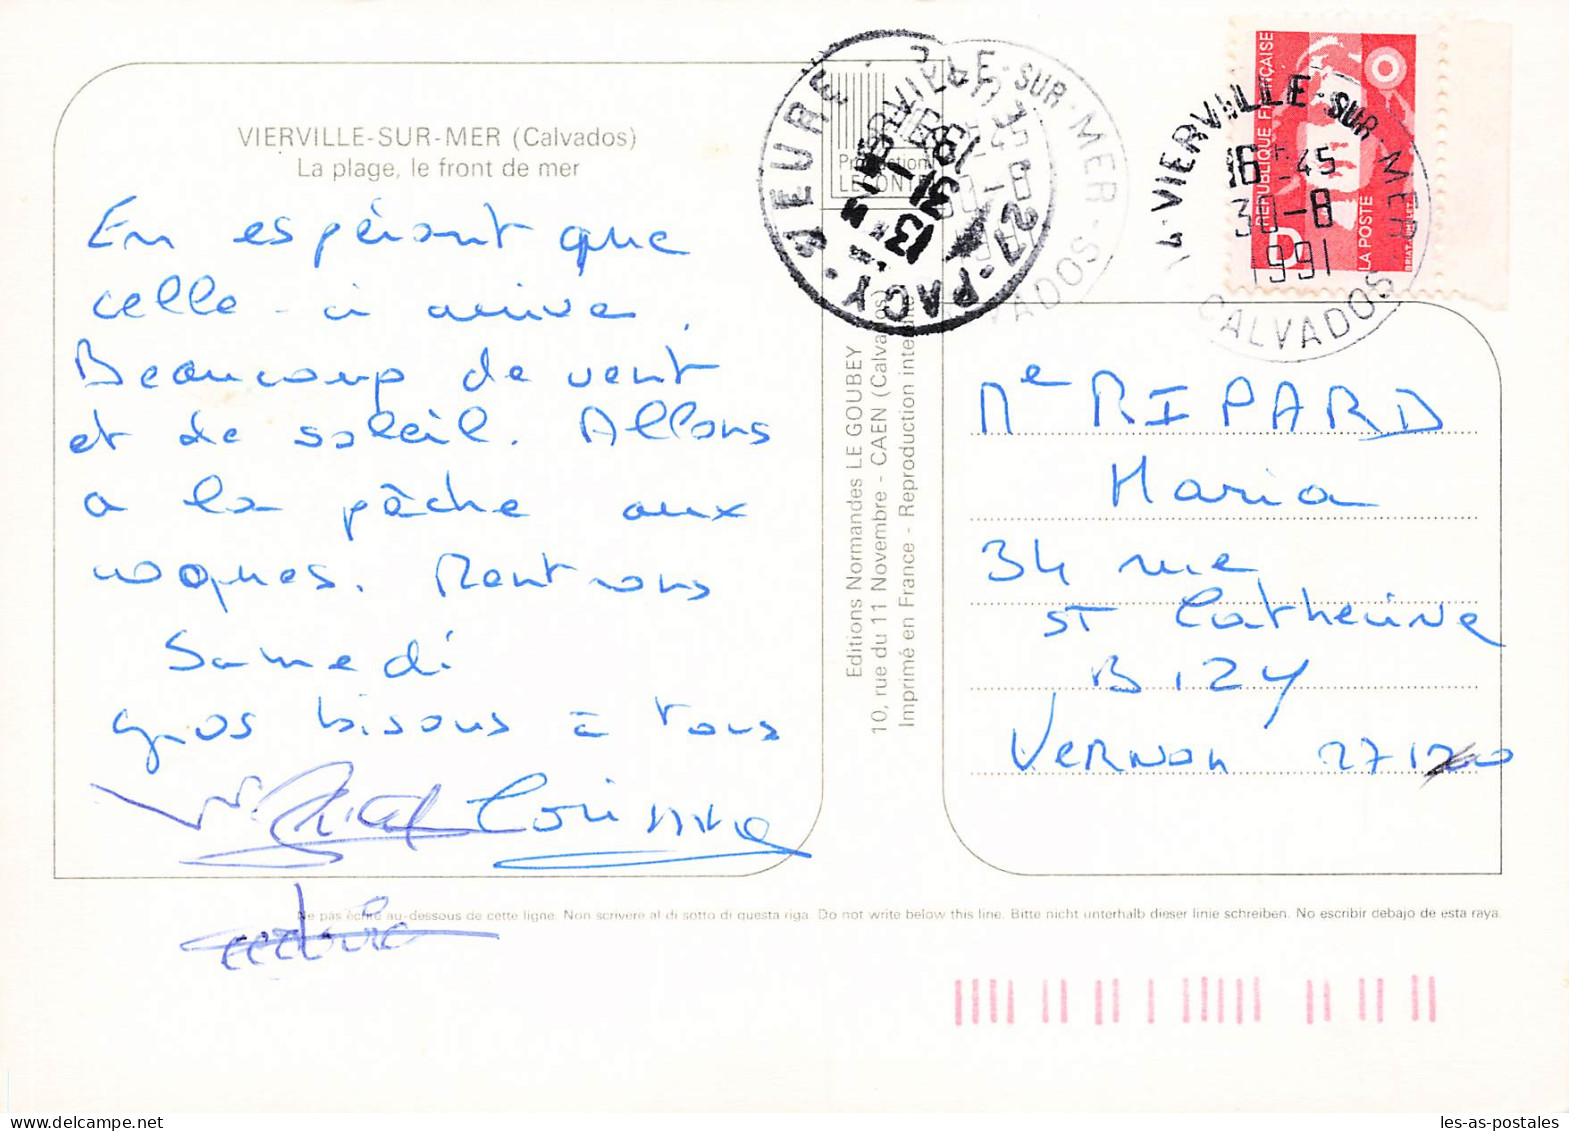 VIERVILLE-SUR-MER (Calvados)
La plage, le front de mer
En espérant que
celle-ci arrive.
Beaucoup de vent
et de soleil. Allons
a la pêche aux
coques. Rentrons
Samedi
gros bisous à tous
Corinne
Production
LECONTE
Editions Normandes LE GOUBEY
10, rue du 11 Novembre - CAEN (Calvados)
Imprimé en France - Reproduction inter
27-PACY-S-EURE
13
31
1991
VIERVILLE-SUR-MER
CALVADOS
14 VIERVILLE-SUR-MER
16 45
30-8
1991
CALVADOS
REPUBLIQUE FRANÇAISE
D
LA POSTE
BRIAT-JUMELET
Me RIPARD
Maria
34 rue
ST Catherine
BIZY
VERNON 27120
Ne pas écrire au-dessous de cette ligne. Non scrivere al di sotto di questa riga. Do not write below this line. Bitte nicht unterhalb dieser linie schreiben. No escribir debajo de esta raya.
les-as-postales